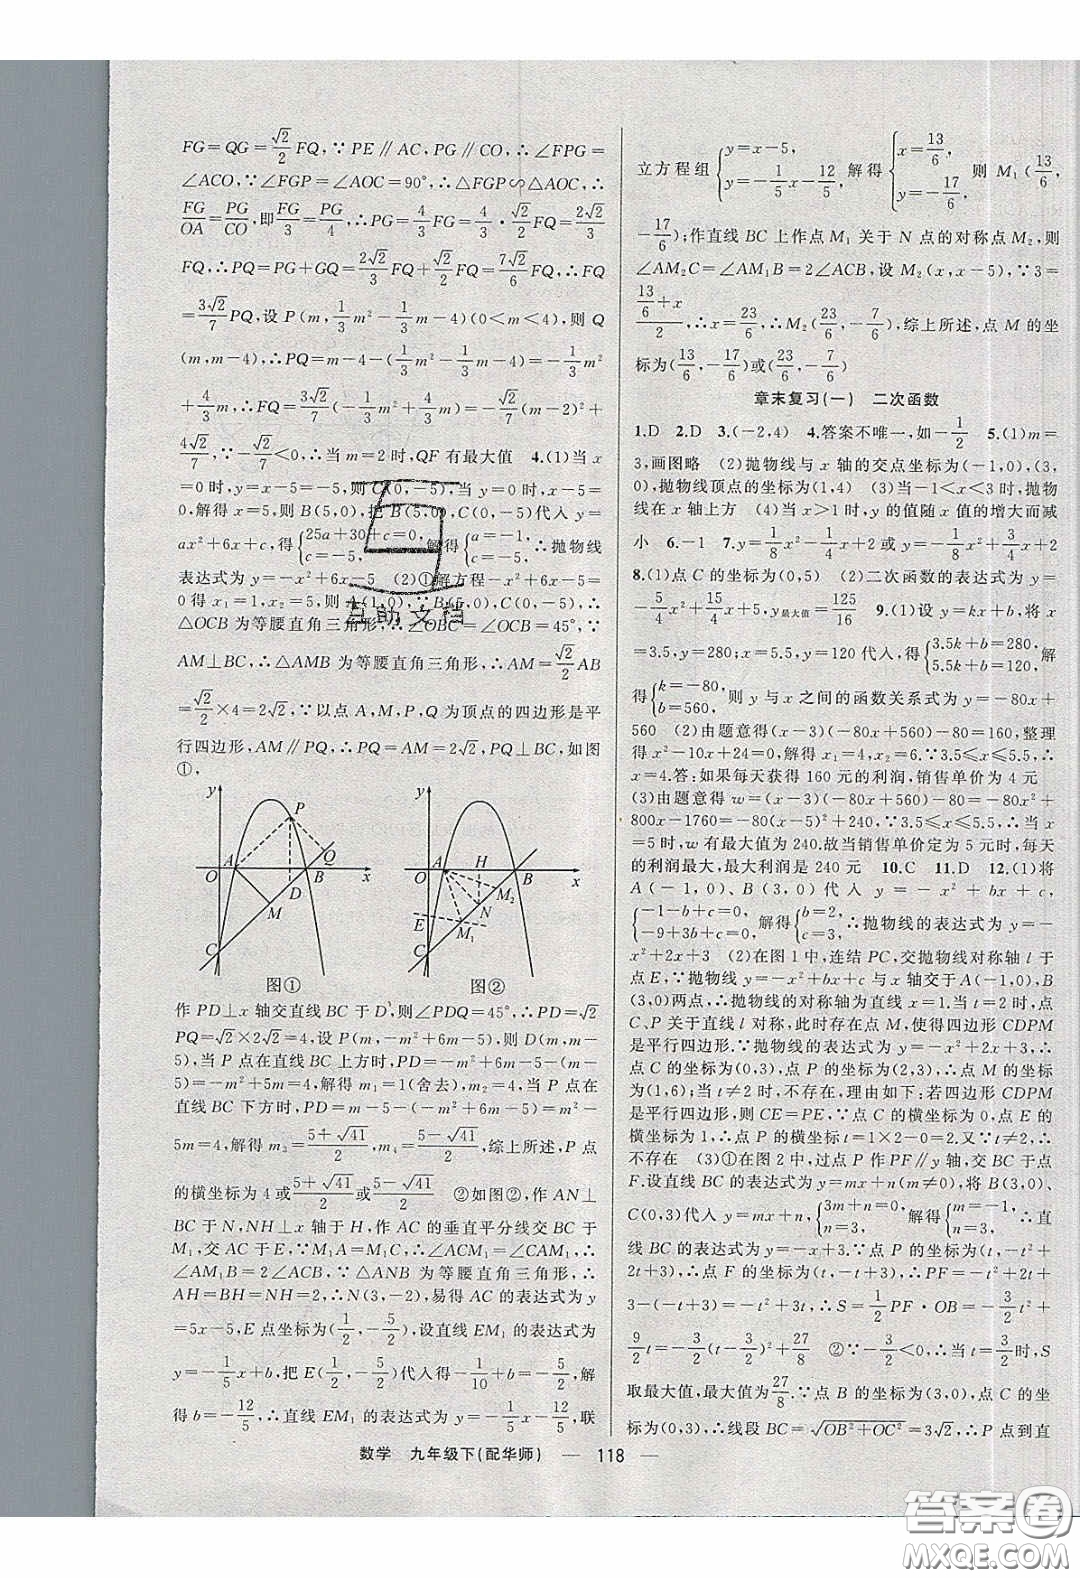 FG=QG=√2/2 FQ,∵PE∥AC,PG∥CO,∴∠FPG
=∠ACO,∵∠FGP=∠AOC=90°,∴△FGP∽△AOC,∴
FG/OA=PG/CO,即FG/3=PG/4,∴PG=4/3 FG=4/3·√2/2 FQ=2√2/3
FQ,∴PQ=PG+GQ=2√2/3 FQ+√2/2 FQ=7√2/6 FQ,∴FQ
=3√2/7 PQ,设P(m,1/3 m²-1/3 m-4)(0<m<4),则Q
(m,m-4),∴PQ=m-4-(1/3 m²-1/3 m-4)=-1/3 m²
+4/3 m,∴FQ=3√2/7(-1/3 m²+4/3 m)=-√2/7(m-2)²+
4√2/7,∵-√2/7<0,∴当m=2时,QF有最大值 4.(1)当x
=0时,y=x-5=-5,则C(0,-5),当y=0时,x-5=
0,解得x=5,则B(5,0),把B(5,0),C(0,-5)代入y=
ax²+6x+c,得{25a+30+c=0, c=-5,解得{a=-1, c=-5,∴抛物线
表达式为y=-x²+6x-5 (2)①解方程-x²+6x-5=
0得x₁=1,x₂=5,则A(1,0),∵B(5,0),C(0,-5),∴
△OCB为等腰直角三角形,∴∠OBC=∠OCB=45°,∵
AM⊥BC,∴△AMB为等腰直角三角形,∴AM=√2/2 AB
=√2/2×4=2√2,∵以点A,M,P,Q为顶点的四边形是平
行四边形,AM∥PQ,∴PQ=AM=2√2,PQ⊥BC,如图
①,
y P A Q O D B x M C 图①
y A H B O x M₂ E N M₁ C 图②
作PD⊥x轴交直线BC于D,则∠PDQ=45°,∴PD=√2
PQ=√2×2√2=4,设P(m,-m²+6m-5),则D(m,m-
5),当P点在直线BC上方时,PD=-m²+6m-5-(m-
5)=-m²+5m=4,解得m₁=1(舍去),m₂=4,当P点在
直线BC下方时,PD=m-5-(-m²+6m-5)=m²-
5m=4,解得m₃=5+√41/2,m₄=5-√41/2,综上所述,P点
的横坐标为4或5+√41/2或5-√41/2 ②如图②,作AN⊥
BC于N,NH⊥x轴于H,作AC的垂直平分线交BC于
M₁,交AC于E,∵M₁A=M₁C,∴∠ACM₁=∠CAM₁,∴
∠AM₁B=2∠ACB,∵△ANB为等腰直角三角形,∴
AH=BH=NH=2,∴N(3,-2),易得AC的表达式为y
=5x-5,E点坐标为(1/2,-5/2),设直线EM₁的表达式为
y=-1/5 x+b,把E(1/2,-5/2)代入得-1/10+b=-5/2,解
得b=-12/5,∴直线EM₁的表达式为y=-1/5 x-12/5,联
立方程组{y=x-5, y=-1/5 x-12/5,解得{x=13/6, y=-17/6,则M₁(13/6,
-17/6);作直线BC上作点M₁关于N点的对称点M₂,则
∠AM₂C=∠AM₁B=2∠ACB,设M₂(x,x-5),∵3=
(13/6+x)/2,∴x=23/6,∴M₂(23/6,-7/6),综上所述,点M的坐
标为(13/6,-17/6)或(23/6,-7/6)
章末复习(一) 二次函数
1.D 2.D 3.(-2,4) 4.答案不唯一,如-1/2 5.(1)m=
3,画图略 (2)抛物线与x轴的交点坐标为(-1,0),(3,
0),抛物线顶点的坐标为(1,4) (3)当-1<x<3时,抛物
线在x轴上方 (4)当x>1时,y的值随x值的增大而减
小 6.-1 7.y=1/8 x²-1/4 x+2或y=-1/8 x²+3/4 x+2
8.(1)点C的坐标为(0,5) (2)二次函数的表达式为y=
-5/4 x²+15/4 x+5,y最大值=125/16 9.(1)设y=kx+b,将x
=3.5,y=280;x=5.5,y=120代入,得{3.5k+b=280, 5.5k+b=120,解
得{k=-80, b=560,则y与x之间的函数关系式为y=-80x+
560 (2)由题意得(x-3)(-80x+560)-80=160,整理
得x²-10x+24=0,解得x₁=4,x₂=6.∵3.5≤x≤5.5,∴
x=4.答:如果每天获得160元的利润,销售单价为4元
(3)由题意得w=(x-3)(-80x+560)-80=-80x²+
800x-1760=-80(x-5)²+240,∵3.5≤x≤5.5,∴当x
=5时,w有最大值为240.故当销售单价定为5元时,每天
的利润最大,最大利润是240元 10.C 11.D 12.(1)将
A(-1,0)、B(3,0)代入y=-x²+bx+c,
{-1-b+c=0, -9+3b+c=0,解得{b=2, c=3,∴抛物线的表达式为y=-
x²+2x+3 (2)在图1中,连结PC,交抛物线对称轴l于
点E,∵抛物线y=-x²+bx+c与x轴交于A(-1,0),B
(3,0)两点,∴抛物线的对称轴为直线x=1,当t=2时,点
C、P关于直线l对称,此时存在点M,使得四边形CDPM
是平行四边形.∵抛物线的表达式为y=-x²+2x+3,∴
点C的坐标为(0,3),点P的坐标为(2,3),∴点M的坐标为
(1,6);当t≠2时,不存在,理由如下:若四边形CDPM
是平行四边形,则CE=PE,∵点C的横坐标为0,点E的
横坐标为1,∴点P的横坐标t=1×2-0=2.又∵t≠2,∴
不存在 (3)①在图2中,过点P作PF∥y轴,交BC于点
F.设直线BC的表达式为y=mx+n(m≠0),将B(3,0)、
C(0,3)代入y=mx+n,{3m+n=0, n=3,解得{m=-1, n=3,∴直
线BC的表达式为y=-x+3.∵点P的坐标为(t,-t²+
2t+3),∴点F的坐标为(t,-t+3),∴PF=-t²+2t+
3-(-t+3)=-t²+3t,∴S=1/2 PF·OB=-3/2 t²+
9/2 t=-3/2(t-3/2)²+27/8 ②∵-3/2<0,∴当t=3/2时,S
取最大值,最大值为27/8.∵点B的坐标为(3,0),点C的坐
标为(0,3),∴线段BC=√OB²+OC²=3√2,∴P点到直
互助文档
数学 九年级下(配华师) — 118 —
答案卷
MXQE.COM